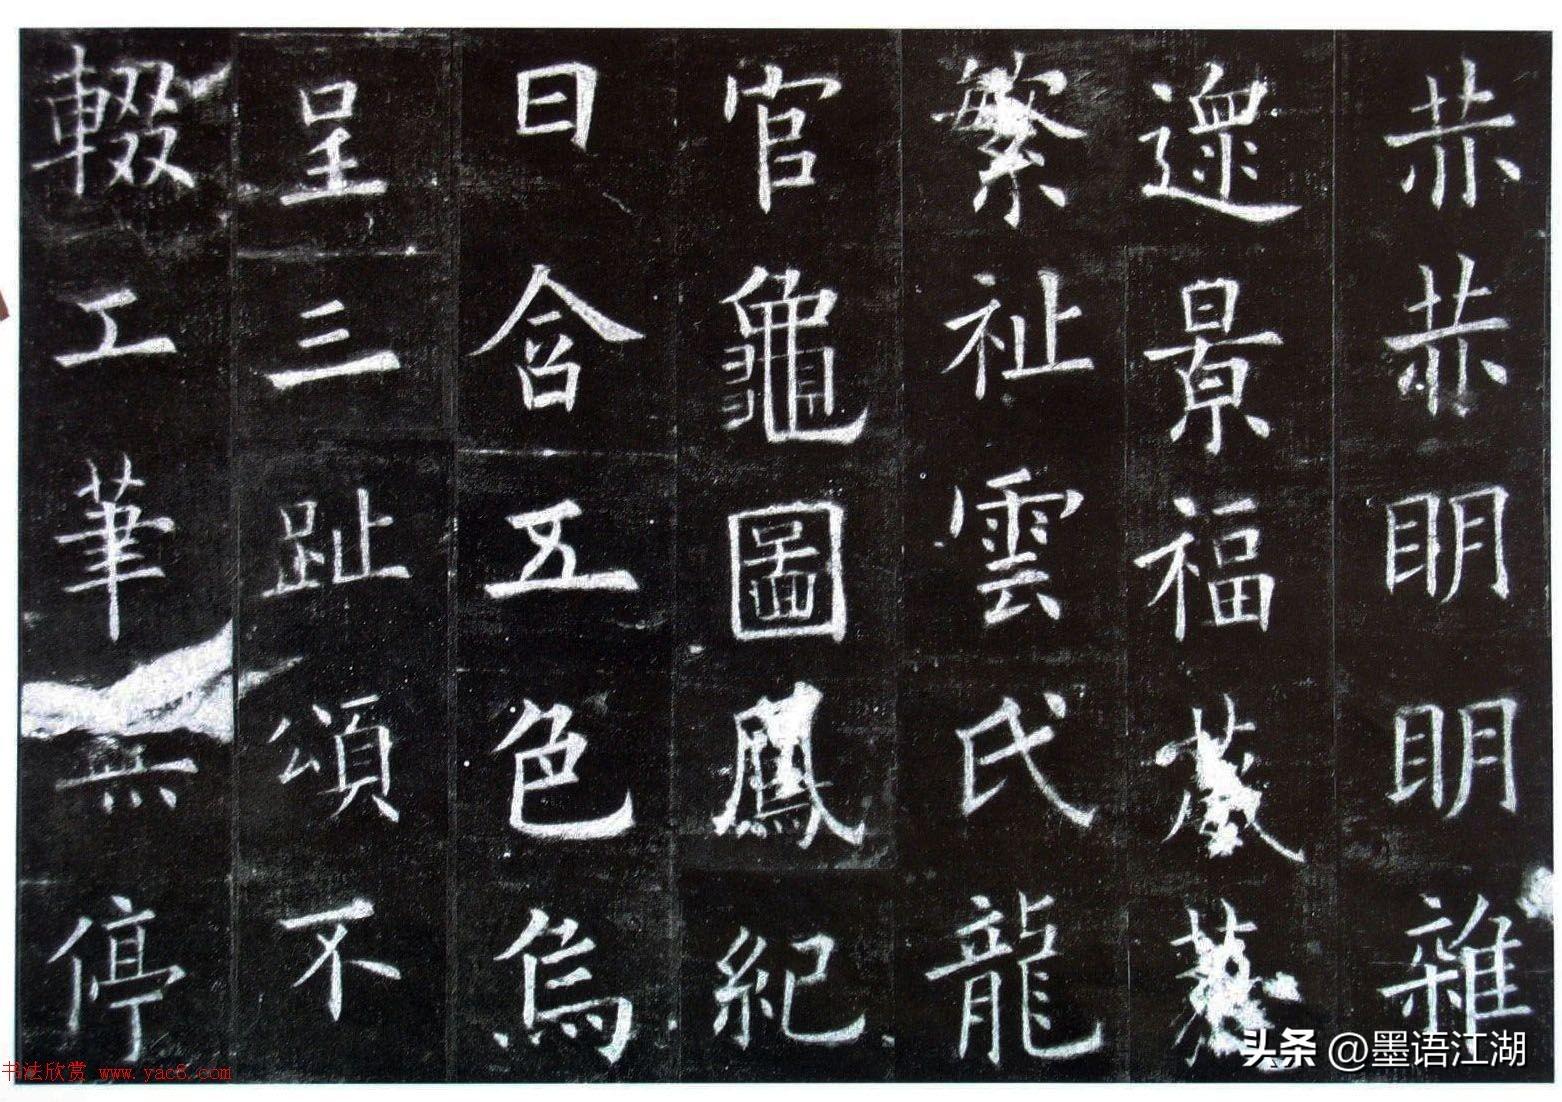 赫赫明明雜
遝景福葳蕤
繁祉雲氏龍
官龜圖鳳紀
日含五色烏
呈三趾頌不
輟工筆無停
头条 @墨语江湖
书法欣赏 www.yac8.com